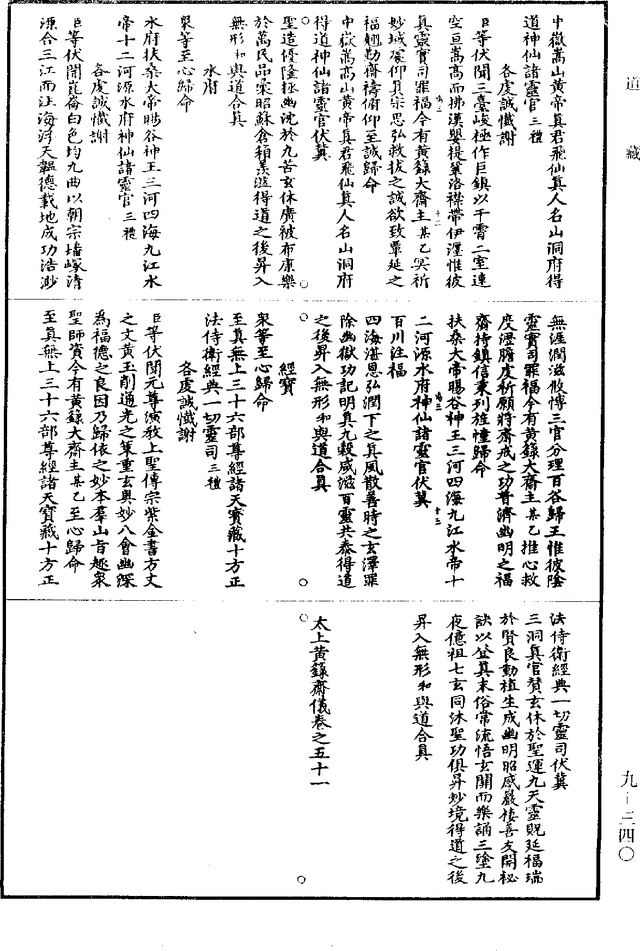 道藏
中嶽嵩山黃帝真君飛仙真人名山洞府得
道神仙諸靈官三禮
各虔誠懺謝
臣等伏聞三臺峻極作巨鎮以干霄二室連
空亘嵩高而拂漢嬰提鞏洛襟帶伊瀍惟彼
真靈實司罪福今有黃籙大齋主某乙冥祈
妙域虔仰真宗思弘救拔之誠欲致覃延之
福翹勤齋禱俯仰至誠歸命
中嶽嵩高山黃帝真君飛仙真人名山洞府
得道神仙諸靈官伏冀
聖造優隆拯幽沈於九苦玄休廣被布康樂
於萬民品彙昭蘇倉箱羨溢得道之後昇入
無形和與道合真
水府
眾等至心歸命
水府扶桑大帝暘谷神王三河四海九江水
帝十二河源水府神仙諸靈官三禮
各虔誠懺謝
臣等伏聞崑崙白色均九曲以朝宗嶓冢清
源合三江而注海浮天韞德載地成功浩渺
無涯潤滋攸愽三官分理百谷歸王惟彼陰
靈實司罪福今有黃籙大齋主某乙推心救
度瀝膽虔祈願將齋戒之功普濟幽明之福
齋持鎮信秉列旌幢歸命
扶桑大帝暘谷神王三河四海九江水帝十
二河源水府神仙諸靈官伏冀
百川注福
四海湛恩弘潤下之真風散善時之玄澤罪
除幽獄功記明真九穀咸滋百靈共泰得道
之後昇入無形和與道合真
經寶
眾等至心歸命
至真無上三十六部尊經諸天寶藏十方正
法侍衛經典一切靈司三禮
各虔誠懺謝
臣等伏聞元尊演教上聖傳宗紫金書方丈
之文黃玉削通光之策重玄奧妙八會幽深
為福德之良因乃歸依之妙本羣山旨趣眾
聖師資今有黃籙大齋主某乙至心歸命
至真無上三十六部尊經諸天寶藏十方正
法侍衛經典一切靈司伏冀
三洞真官賛玄休於聖運九天靈貺延福瑞
於賢良動植生成幽明昭感嚴棲善友開祕
訣以登真末俗常流悟玄關而樂誦三塗九
夜億祖七玄同沐聖功俱昇妙境得道之後
昇入無形和與道合真
太上黃籙齋儀卷之五十一
九－三四〇